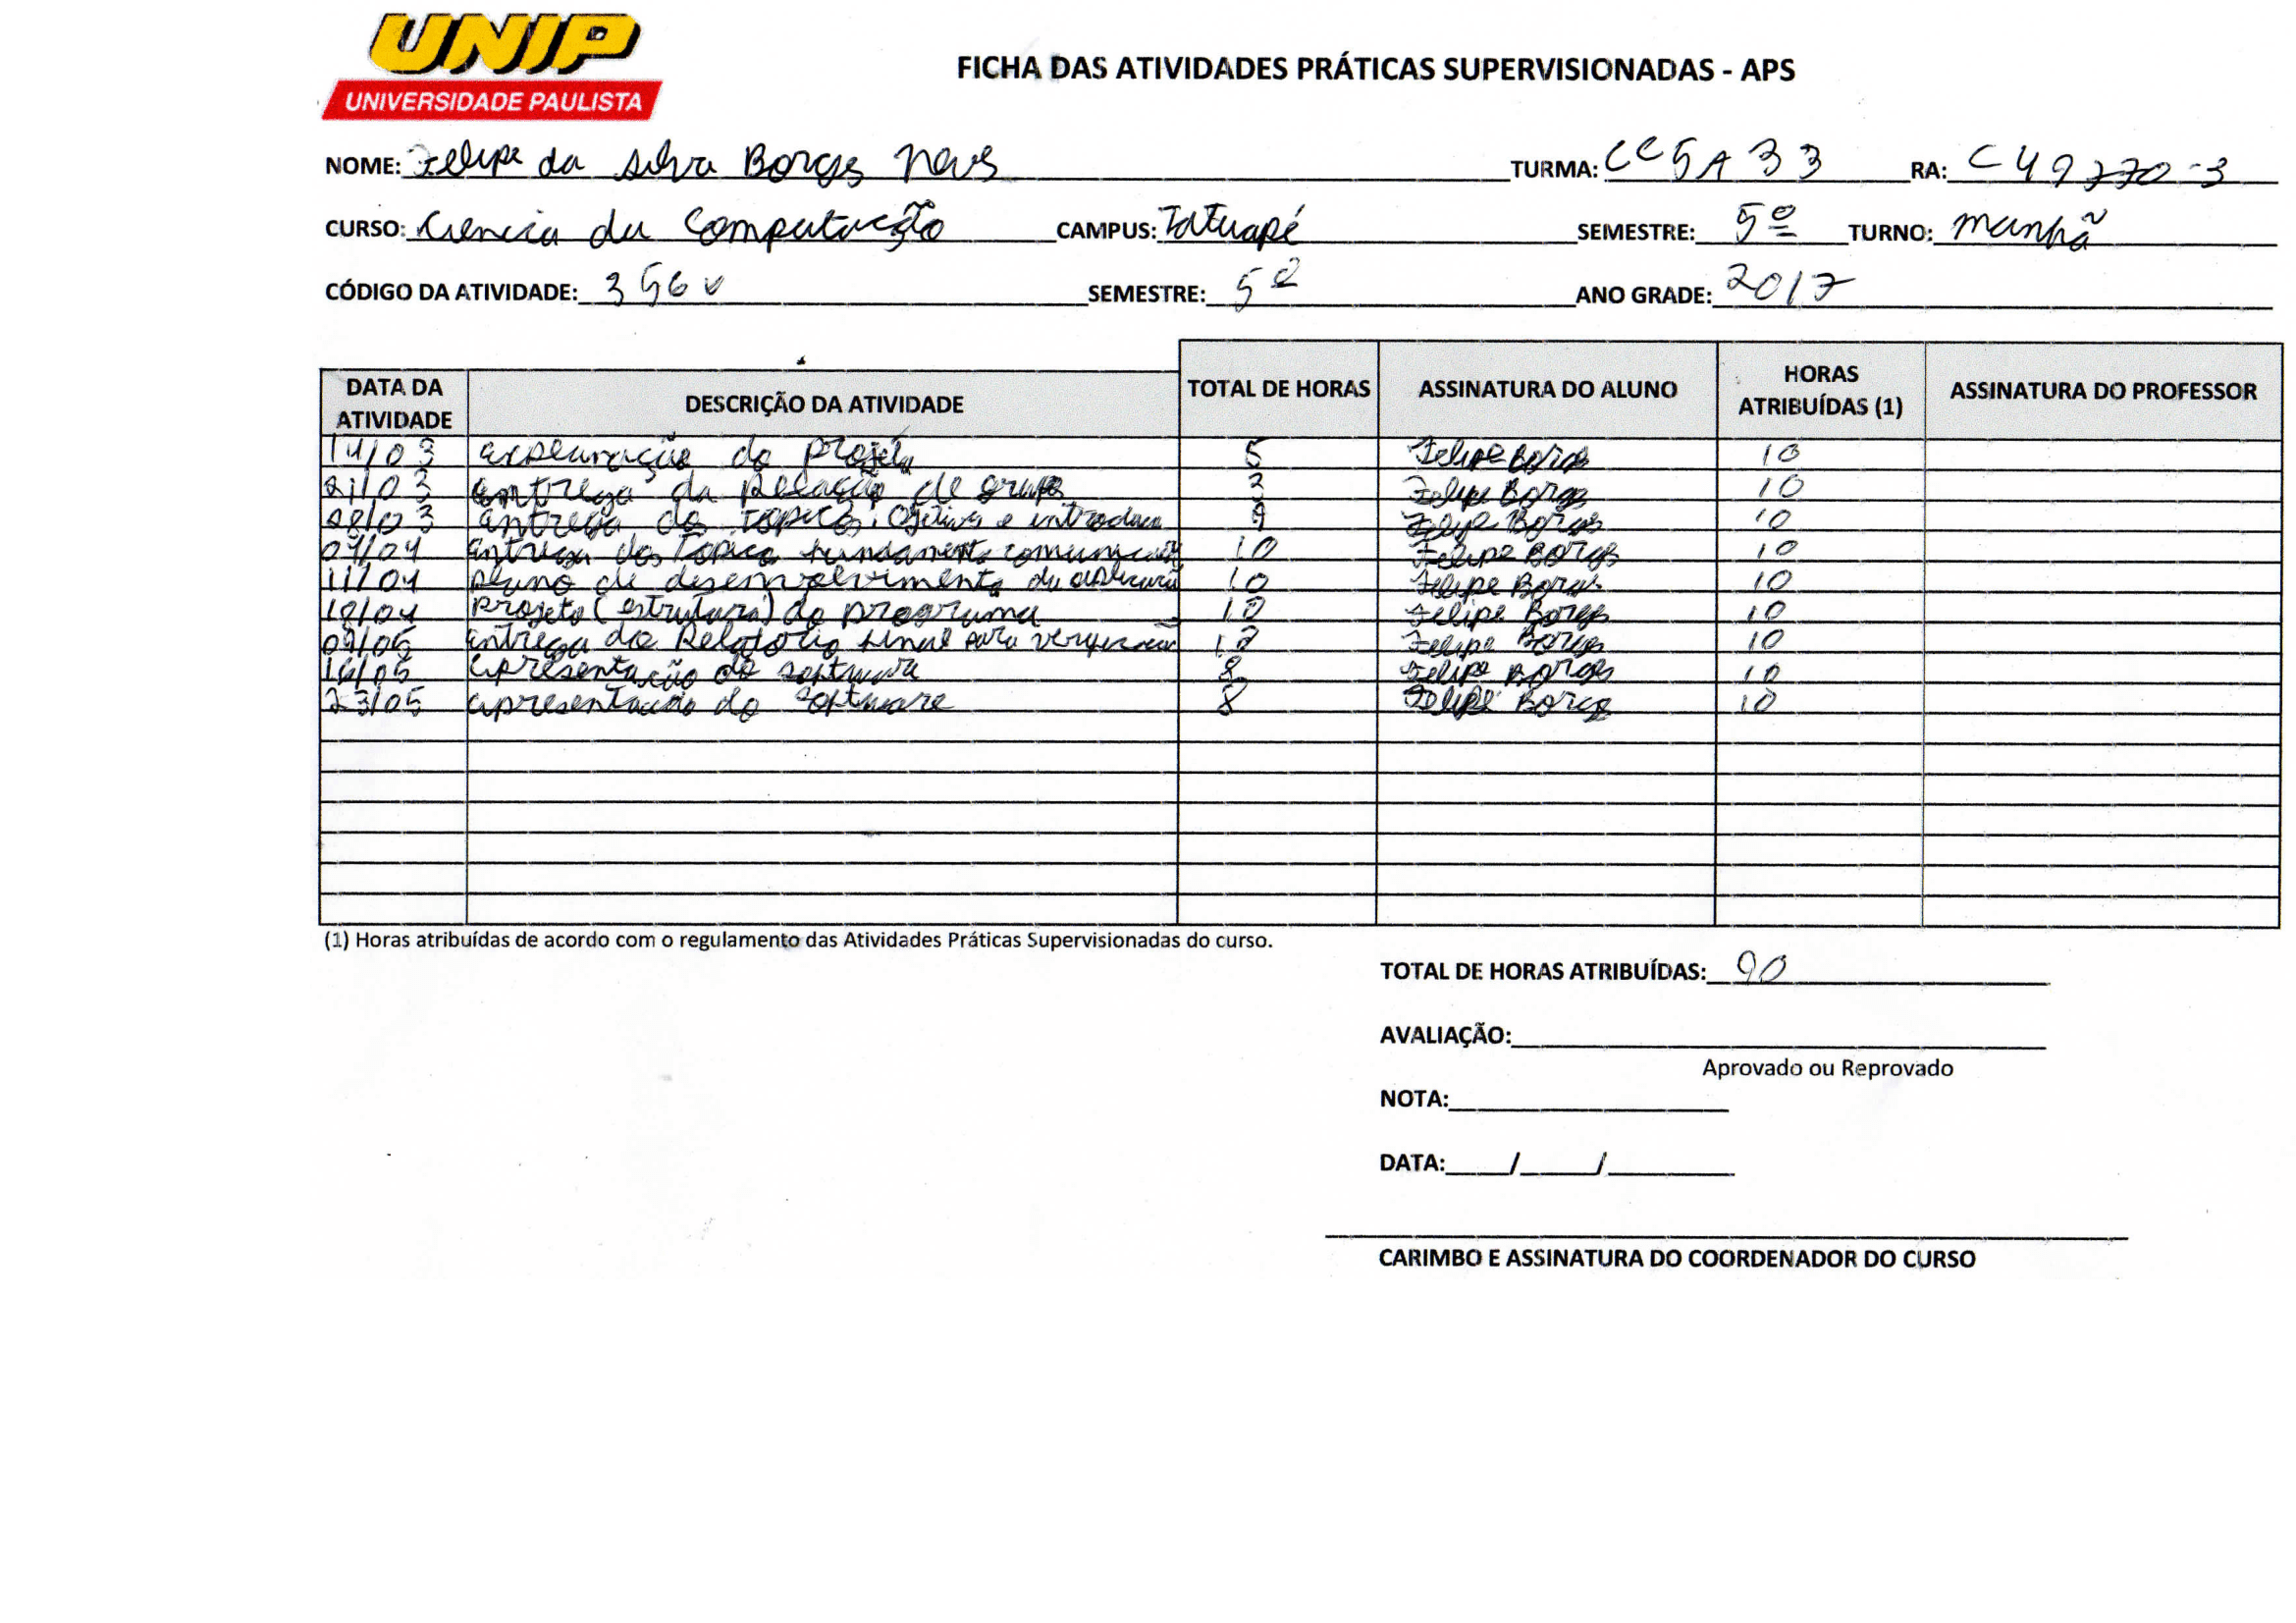 UNIP
UNIVERSIDADE PAULISTA
FICHA DAS ATIVIDADES PRÁTICAS SUPERVISIONADAS - APS
NOME: Felipe da Silva Borges Neves TURMA: CC5A33 RA: C49770-3
CURSO: Ciencia da Computação CAMPUS: Tatuapé SEMESTRE: 5º TURNO: manhã
CÓDIGO DA ATIVIDADE: SEMESTRE: 5º ANO GRADE: 2017
DATA DA ATIVIDADE DESCRIÇÃO DA ATIVIDADE TOTAL DE HORAS ASSINATURA DO ALUNO HORAS ATRIBUÍDAS (1) ASSINATURA DO PROFESSOR
14/03 do projeto 5 Felipe Borges 10
21/03 entrega da Relação de grupo 3 Felipe Borges 10
28/03 entrega do e 9 Felipe Borges 10
04/04 entrega dos 10 Felipe Borges 10
11/04 plano de desenvolvimento da 10 Felipe Borges 10
18/04 projeto (estrutura) do programa 10 Felipe Borges 10
09/05 entrega do Relatorio final para Felipe Borges 10
16/05 apresentação do software 8 Felipe Borges 10
23/05 apresentacão do software 8 Felipe Borges 10
(1) Horas atribuídas de acordo com o regulamento das Atividades Práticas Supervisionadas do curso.
TOTAL DE HORAS ATRIBUÍDAS: 90
AVALIAÇÃO:
Aprovado ou Reprovado
NOTA:
DATA: / /
CARIMBO E ASSINATURA DO COORDENADOR DO CURSO